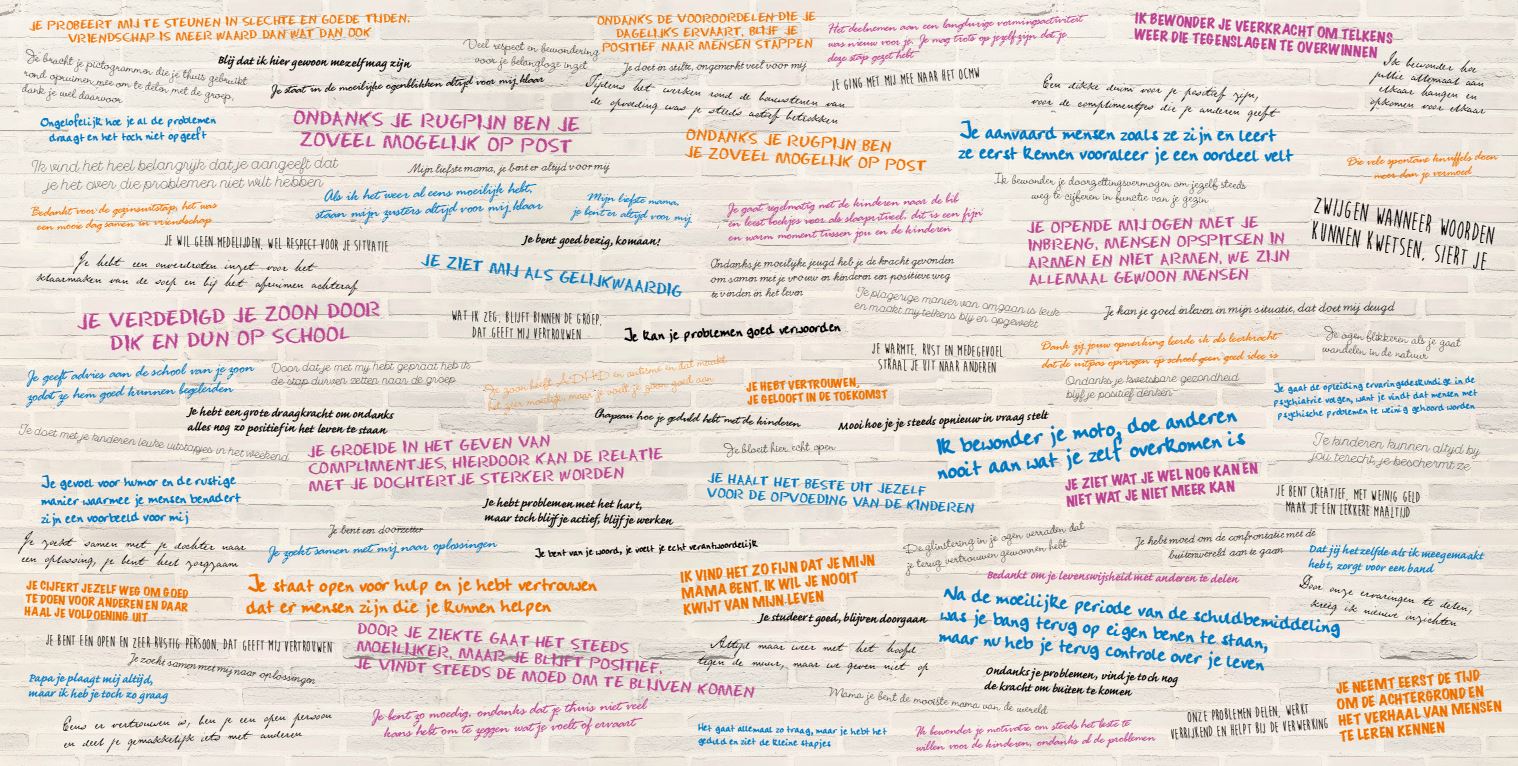 JE PROBEERT MIJ TE STEUNEN IN SLECHTE EN GOEDE TIJDEN.
VRIENDSCHAP IS MEER WAARD DAN WAT DAN OOK
ONDANKS DE VOOROORDELEN DIE JE
DAGELIJKS ERVAART, BLIJF JE
POSITIEF NAAR MENSEN STAPPEN
Het deelnemen aan een langdurige vormingsactiviteit
was nieuw voor je. Je mag trots op jezelf zijn dat je
deze stap gezet hebt
IK BEWONDER JE VEERKRACHT OM TELKENS
WEER DIE TEGENSLAGEN TE OVERWINNEN
Je bracht je pictogrammen die je thuis gebruikt
rond opruimen mee om te delen met de groep,
dank je wel daarvoor
Blij dat ik hier gewoon mezelf mag zijn
Veel respect en bewondering
voor je belangloze inzet
Je doet in stilte, ongemerkt veel voor mij
Je staat in de moeilijke ogenblikken altijd voor mij klaar
Tijdens het werken rond de bouwstenen van
de opvoeding was je steeds actief betrokken
JE GING MET MIJ MEE NAAR HET OCMW
Een dikke duim voor je positief zijn,
voor de complimentjes die je anderen geeft
Ik bewonder hoe
jullie allemaal aan
elkaar hangen en
opkomen voor elkaar
Ongelofelijk hoe je al de problemen
draagt en het toch niet opgeeft
ONDANKS JE RUGPIJN BEN JE
ZOVEEL MOGELIJK OP POST
ONDANKS JE RUGPIJN BEN
JE ZOVEEL MOGELIJK OP POST
Je aanvaard mensen zoals ze zijn en leert
ze eerst kennen vooraleer je een oordeel velt
Die vele spontane knuffels doen
meer dan je vermoed
Ik vind het heel belangrijk dat je aangeeft dat
je het over die problemen niet wilt hebben
Mijn liefste mama, je bent er altijd voor mij
Ik bewonder je doorzettingsvermogen om jezelf steeds
weg te cijferen in functie van je gezin
Bedankt voor de gezinsuitstap, het was
een mooie dag samen in vriendschap
Als ik het weer al eens moeilijk hebt,
staan mijn zusters altijd voor mij klaar
Mijn liefste mama,
je bent er altijd voor mij
Je gaat regelmatig met de kinderen naar de bib
en leest boekjes voor als slaapritueel, dit is een fijn
en warm moment tussen jou en de kinderen
JE OPENDE MIJ OGEN MET JE
INBRENG, MENSEN OPSPITSEN IN
ARMEN EN NIET ARMEN, WE ZIJN
ALLEMAAL GEWOON MENSEN
ZWIJGEN WANNEER WOORDEN
KUNNEN KWETSEN, SIERT JE
JE WIL GEEN MEDELIJDEN, WEL RESPECT VOOR JE SITUATIE
Je bent goed bezig, komaan!
Je hebt een onverdroten inzet voor het
klaarmaken van de soep en bij het afruimen achteraf
JE ZIET MIJ ALS GELIJKWAARDIG
Ondanks je moeilijke jeugd heb je de kracht gevonden
om samen met je vrouw en kinderen een positieve weg
te vinden in het leven
Je plagerige manier van omgaan is leuk
en maakt mij telkens blij en opgewekt
Je kan je goed inleven in mijn situatie, dat doet mij deugd
JE VERDEDIGD JE ZOON DOOR
DIK EN DUN OP SCHOOL
WAT IK ZEG, BLIJFT BINNEN DE GROEP,
DAT GEEFT MIJ VERTROUWEN
Je kan je problemen goed verwoorden
JE WARMTE, RUST EN MEDEGEVOEL
STRAAL JE UIT NAAR ANDEREN
Dank zij jouw opmerking leerde ik als leerkracht
dat de uitpas opvragen op school geen goed idee is
Je ogen blikkeren als je gaat
wandelen in de natuur
Je geeft advies aan de school van je zoon
zodat ze hem goed kunnen begeleiden
Door dat je met mij hebt gepraat heb ik
de stap durven zetten naar de groep
Je zoon heeft ADHD en autisme en dat maakt
het zeer moeilijk, maar je voelt je zoon goed aan
JE HEBT VERTROUWEN,
JE GELOOFT IN DE TOEKOMST
Ondanks je kwetsbare gezondheid
blijf je positief denken
Je gaat de opleiding ervaringsdeskundige in de
psychiatrie volgen, want je vindt dat mensen met
psychische problemen te weinig gehoord worden
Je hebt een grote draagkracht om ondanks
alles nog zo positief in het leven te staan
Chapeau hoe je geduld hebt met de kinderen
Mooi hoe je je steeds opnieuw in vraag stelt
Ik bewonder je moto, doe anderen
nooit aan wat je zelf overkomen is
Je doet met je kinderen leuke uitstapjes in het weekend
JE GROEIDE IN HET GEVEN VAN
COMPLIMENTJES, HIERDOOR KAN DE RELATIE
MET JE DOCHTERTJE STERKER WORDEN
Je bloeit hier echt open
Je kinderen kunnen altijd bij
jou terecht, je beschermt ze
Je gevoel voor humor en de rustige
manier waarmee je mensen benadert
zijn een voorbeeld voor mij
JE HAALT HET BESTE UIT JEZELF
VOOR DE OPVOEDING VAN DE KINDEREN
JE ZIET WAT JE WEL NOG KAN EN
NIET WAT JE NIET MEER KAN
JE BENT CREATIEF, MET WEINIG GELD
MAAK JE EEN LEKKERE MAALTIJD
Je hebt problemen met het hart,
maar toch blijf je actief, blijf je werken
Je bent een doorzetter
Je zoekt samen met je dochter naar
een oplossing, je bent heel zorgzaam
Je zoekt samen met mij naar oplossingen
Je bent van je woord, je voelt je echt verantwoordelijk
De glinstering in je ogen verraden dat
je terug vertrouwen gewonnen hebt
Je hebt moed om de confrontatie met de
buitenwereld aan te gaan
Dat jij hetzelfde als ik meegemaakt
hebt, zorgt voor een band
JE CIJFERT JEZELF WEG OM GOED
TE DOEN VOOR ANDEREN EN DAAR
HAAL JE VOLDOENING UIT
Je staat open voor hulp en je hebt vertrouwen
dat er mensen zijn die je kunnen helpen
IK VIND HET ZO FIJN DAT JE MIJN
MAMA BENT. IK WIL JE NOOIT
KWIJT VAN MIJN LEVEN
Bedankt om je levenswijsheid met anderen te delen
Door onze ervaringen te delen,
kreeg ik nieuwe inzichten
Na de moeilijke periode van de schuldbemiddeling
was je bang terug op eigen benen te staan,
maar nu heb je terug controle over je leven
Je studeert goed, blijven doorgaan
JE BENT EEN OPEN EN ZEER RUSTIG PERSOON, DAT GEEFT MIJ VERTROUWEN
DOOR JE ZIEKTE GAAT HET STEEDS
MOEILIJKER, MAAR JE BLIJFT POSITIEF.
JE VINDT STEEDS DE MOED OM TE BLIJVEN KOMEN
Altijd maar weer met het hoofd
tegen de muur, maar we geven niet op
Je zoekt samen met mij naar oplossingen
Papa je plaagt mij altijd,
maar ik heb je toch zo graag
Ondanks je problemen, vind je toch nog
de kracht om buiten te komen
Mama je bent de mooiste mama van de wereld
JE NEEMT EERST DE TIJD
OM DE ACHTERGROND EN
HET VERHAAL VAN MENSEN
TE LEREN KENNEN
Eens er vertrouwen is, ben je een open persoon
en deel je gemakkelijk iets met anderen
Je bent zo moedig, ondanks dat je thuis niet veel
kans hebt om te zeggen wat je voelt of ervaart
Het gaat allemaal zo traag, maar je hebt het
geduld en ziet de kleine stapjes
Ik bewonder je motivatie om steeds het beste te
willen voor de kinderen, ondanks al de problemen
ONZE PROBLEMEN DELEN, WERKT
VERRIJKEND EN HELPT BIJ DE VERWERKING